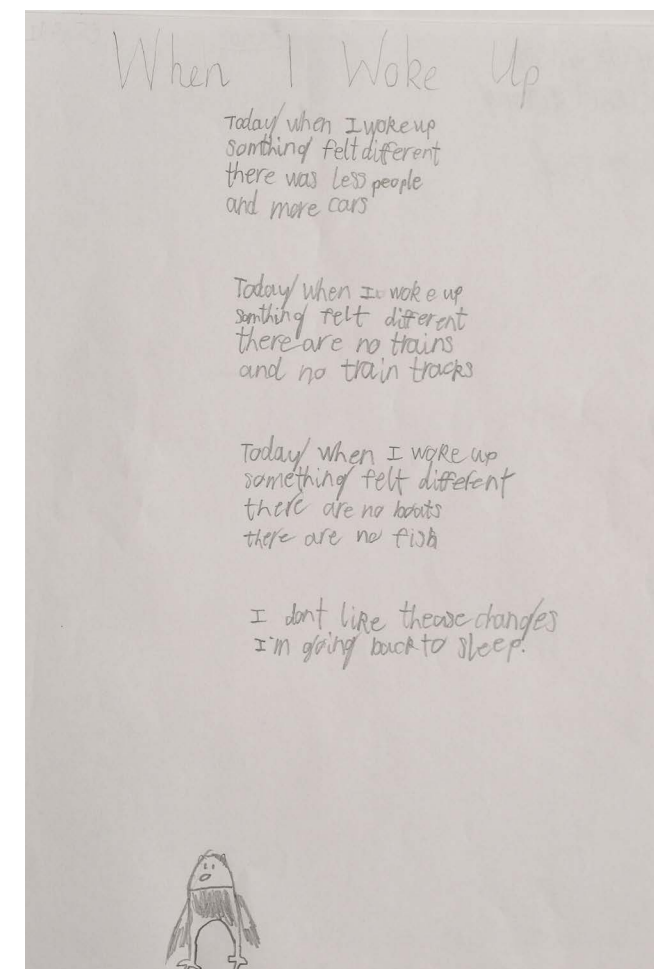 When I Woke Up
Today when I woke up
somthing felt different
there was less people
and more cars
Today when I woke up
somthing felt different
there are no trains
and no train tracks
Today when I woke up
something felt different
there are no boats
there are no fish
I dont like thease changes
I'm going back to sleep.